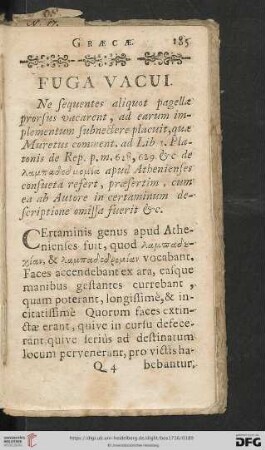 GRÆCÆ 185
FUGA VACUI.
Ne sequentes aliquot pagellæ
prorsus vacarent, ad earum im
plementum subnectere placuit, quæ
Muretus comment. ad Lib 1. Pla-
tonis de Rep. p. m. 628, 629 &c de
λαμπαδοδρομία apud Athenienses
consueta refert, præsertim, cum
ea ab Autore in certaminum de-
scriptione omissa fuerit &c.
CErtaminis genus apud Athe-
nienses fuit, quod λαμπαδη-
χίαν, & λαμπαδοδρομίαν vocabant.
Faces accendebant ex ara, easque
manibus gestantes currebant,
quam poterant, longissimè, & in-
citatissimè Quorum faces extin-
ctæ erant, quive in cursu defece-
rant quive serius ad destinatum
locum pervenerant, pro victis ha-
Q 4 bebantur,
UNIVERSITÄTS-
BIBLIOTHEK
HEIDELBERG
https://digi.ub.uni-heidelberg.de/diglit/
© Universitätsbibliothek Heidelberg
gefördert durch die
DFG